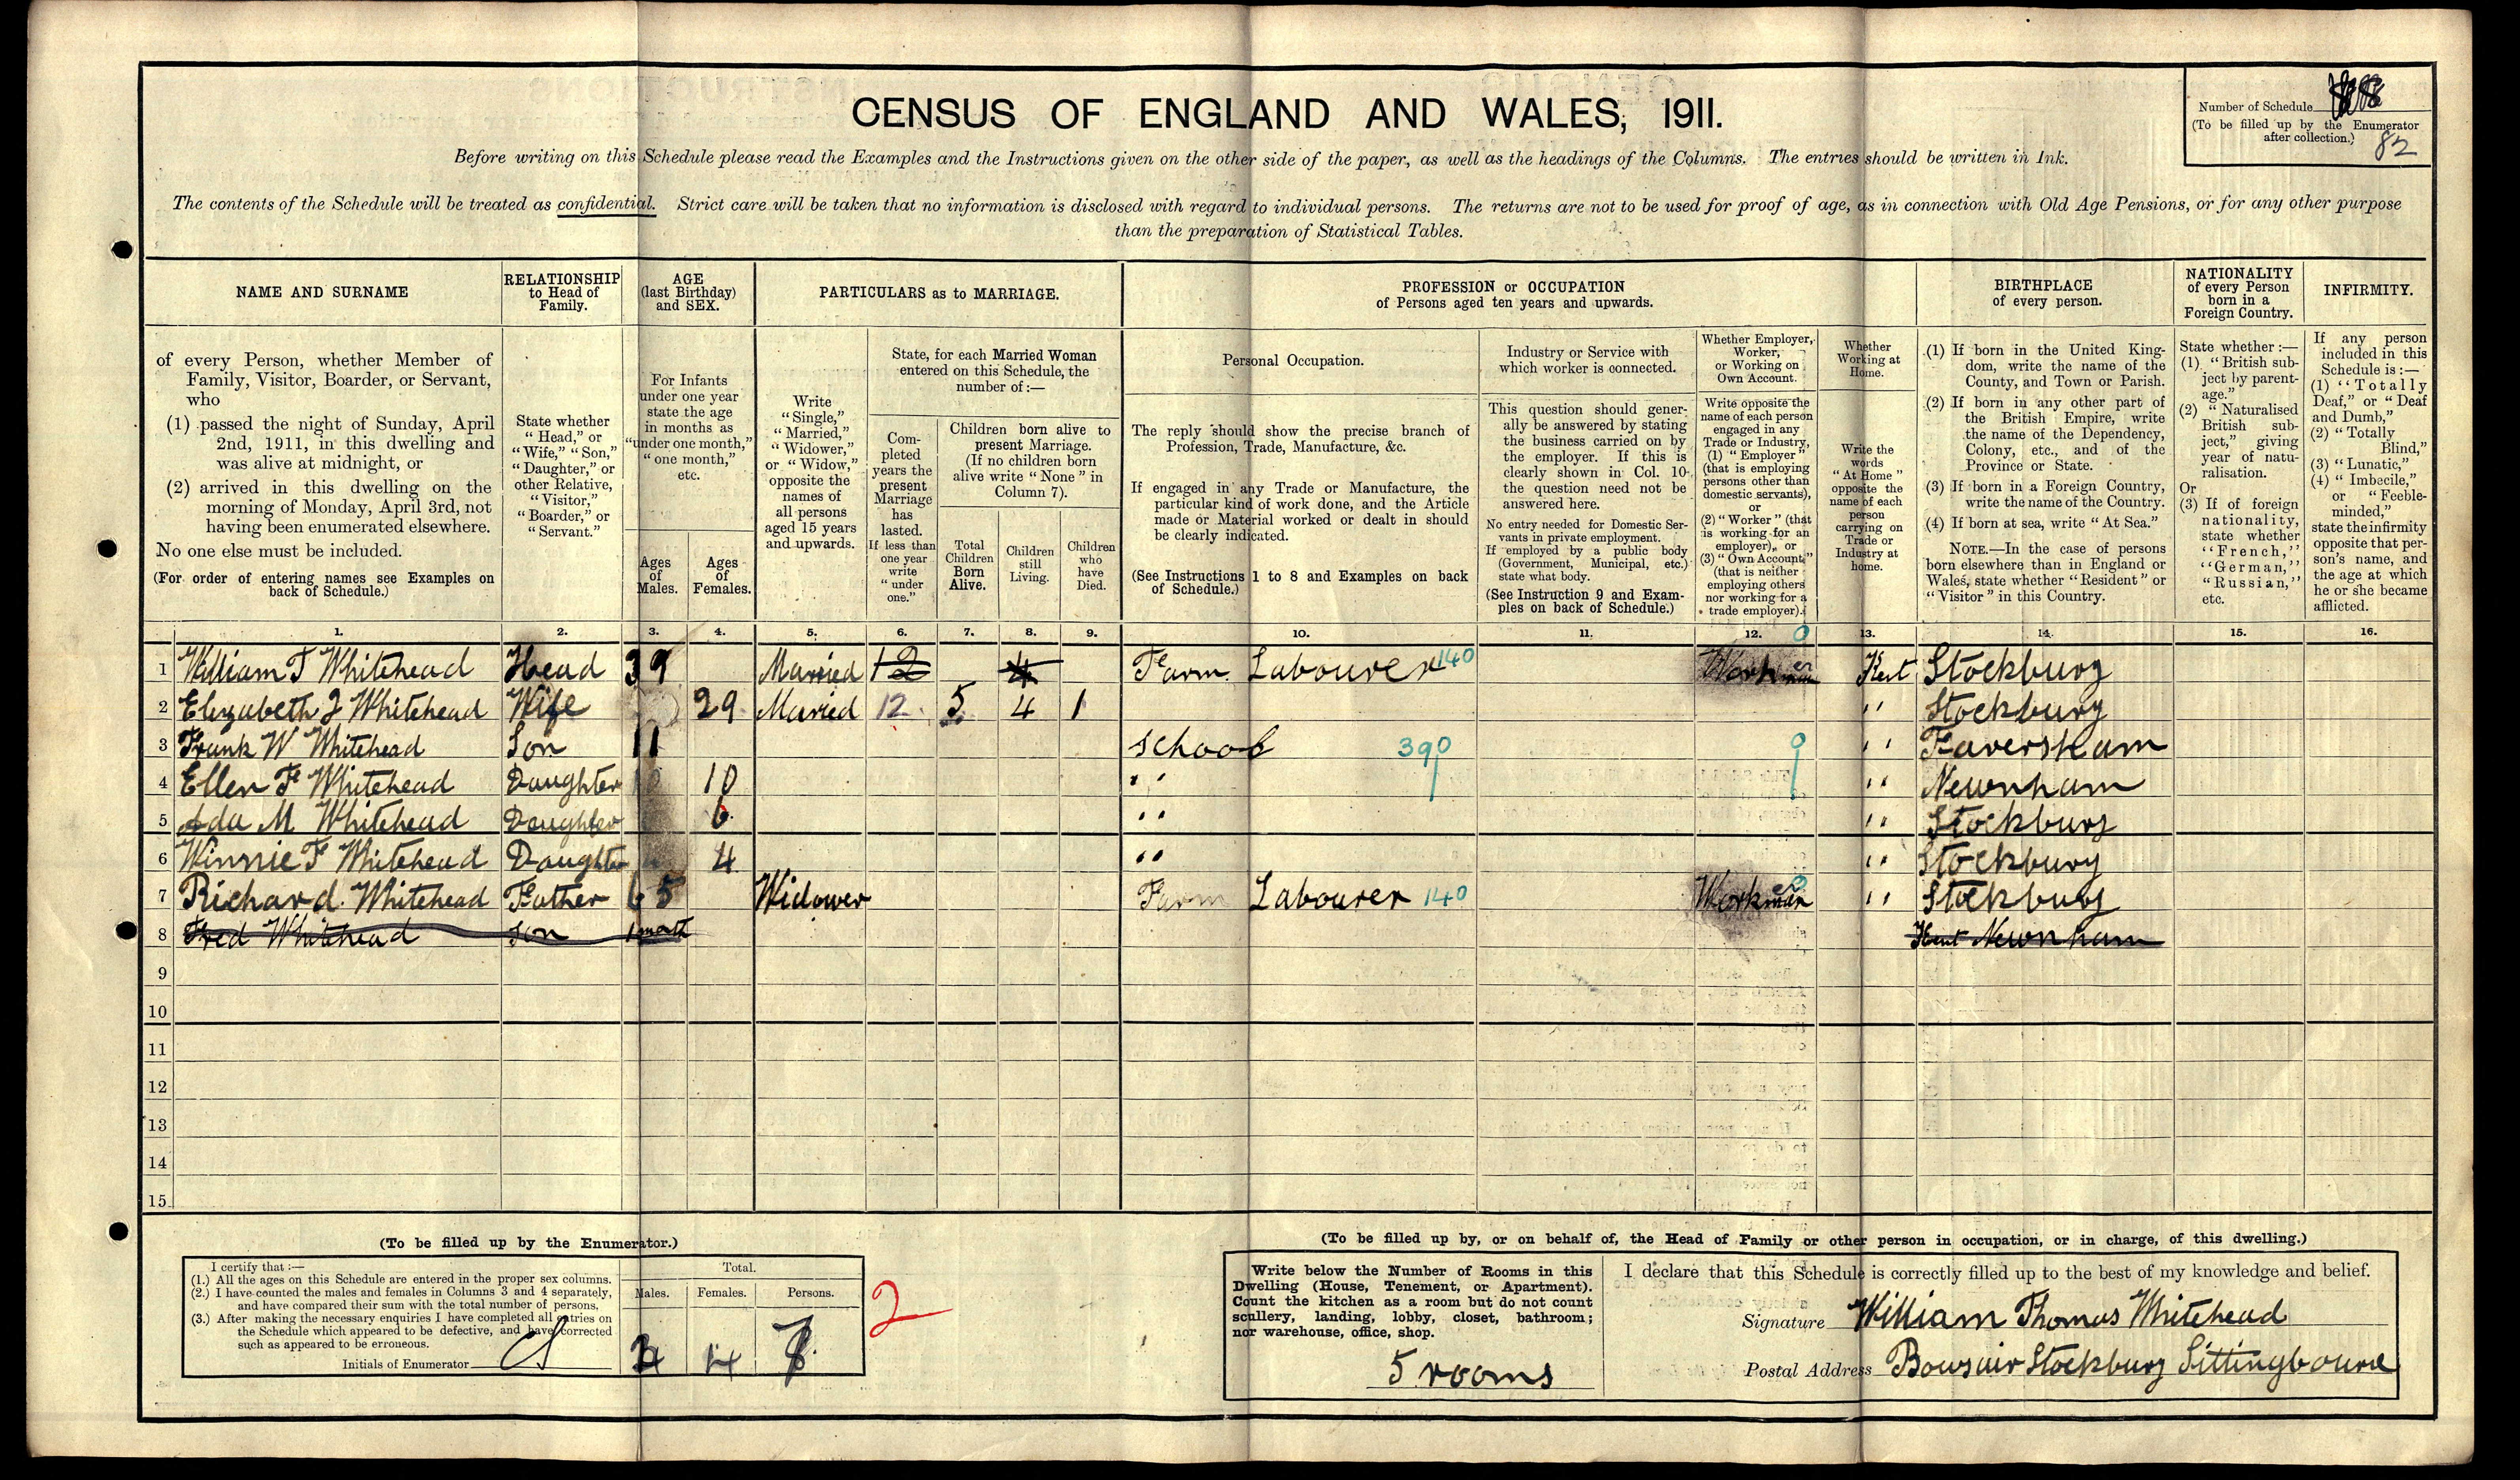 CENSUS OF ENGLAND AND WALES, 1911.
Number of Schedule
(To be filled up by the Enumerator
after collection.)
82
Before writing on this Schedule please read the Examples and the Instructions given on the other side of the paper, as well as the headings of the Columns. The entries should be written in Ink.
The contents of the Schedule will be treated as confidential. Strict care will be taken that no information is disclosed with regard to individual persons. The returns are not to be used for proof of age, as in connection with Old Age Pensions, or for any other purpose
than the preparation of Statistical Tables.
NAME AND SURNAME
of every Person, whether Member of
Family, Visitor, Boarder, or Servant,
who
(1) passed the night of Sunday, April
2nd, 1911, in this dwelling and
was alive at midnight, or
(2) arrived in this dwelling on the
morning of Monday, April 3rd, not
having been enumerated elsewhere.
No one else must be included.
(For order of entering names see Examples on
back of Schedule.)
RELATIONSHIP
to Head of
Family.
State whether
"Head," or
"Wife," "Son,"
"Daughter," or
other Relative,
"Visitor,"
"Boarder," or
"Servant."
AGE
(last Birthday)
and SEX.
For Infants
under one year
state the age
in months as
"under one month,"
"one month,"
etc.
Ages
of
Males.
Ages
of
Females.
PARTICULARS as to MARRIAGE.
Write
"Single,"
"Married,"
"Widower,"
or "Widow,"
opposite the
names of
all persons
aged 15 years
and upwards.
State, for each Married Woman
entered on this Schedule, the
number of:—
Com-
pleted
years the
present
Marriage
has
lasted.
If less than
one year
write
"under
one."
Children born alive to
present Marriage.
(If no children born
alive write "None" in
Column 7).
Total
Children
Born
Alive.
Children
still
Living.
Children
who
have
Died.
PROFESSION or OCCUPATION
of Persons aged ten years and upwards.
Personal Occupation.
The reply should show the precise branch of
Profession, Trade, Manufacture, &c.
If engaged in any Trade or Manufacture, the
particular kind of work done, and the Article
made or Material worked or dealt in should
be clearly indicated.
(See Instructions 1 to 8 and Examples on back
of Schedule.)
Industry or Service with
which worker is connected.
This question should gener-
ally be answered by stating
the business carried on by
the employer. If this is
clearly shown in Col. 10
the question need not be
answered here.
No entry needed for Domestic Ser-
vants in private employment.
If employed by a public body
(Government, Municipal, etc.)
state what body.
(See Instruction 9 and Exam-
ples on back of Schedule.)
Whether Employer,
Worker,
or Working on
Own Account.
Write opposite the
name of each person
engaged in any
Trade or Industry,
(1) "Employer"
(that is employing
persons other than
domestic servants),
or
(2) "Worker" (that
is working for an
employer), or
(3) "Own Account"
(that is neither
employing others
nor working for a
trade employer).
Whether
Working at
Home.
Write the
words
"At Home"
opposite the
name of each
person
carrying on
Trade or
Industry at
home.
BIRTHPLACE
of every person.
(1) If born in the United King-
dom, write the name of the
County, and Town or Parish.
(2) If born in any other part of
the British Empire, write
the name of the Dependency,
Colony, etc., and of the
Province or State.
(3) If born in a Foreign Country,
write the name of the Country.
(4) If born at sea, write "At Sea."
NOTE.—In the case of persons
born elsewhere than in England or
Wales, state whether "Resident" or
"Visitor" in this Country.
NATIONALITY
of every Person
born in a
Foreign Country.
State whether:—
(1) "British sub-
ject by parent-
age."
(2) "Naturalised
British sub-
ject," giving
year of natu-
ralisation.
Or
(3) If of foreign
nationality,
state whether
"French,"
"German,"
"Russian,"
etc.
INFIRMITY.
If any person
included in this
Schedule is:—
(1) "Totally
Deaf," or "Deaf
and Dumb,"
(2) "Totally
Blind,"
(3) "Lunatic,"
(4) "Imbecile,"
or "Feeble-
minded,"
state the infirmity
opposite that per-
son's name, and
the age at which
he or she became
afflicted.
1. 2. 3. 4. 5. 6. 7. 8. 9. 10. 11. 12. 13. 14. 15. 16.
1 William T Whitehead Head 39 Married 12 4 Farm Labourer 140 0 Worker Kent Stockbury
2 Elizabeth J Whitehead Wife 29 Married 12 5 4 1 " Stockbury
3 Frank W Whitehead Son 11 School 390 0 " Faversham
4 Ellen F Whitehead Daughter 10 " " Newnham
5 Ada M Whitehead Daughter 6 " " Stockbury
6 Winnie F Whitehead Daughter 4 " " Stockbury
7 Richard Whitehead Father 65 Widower Farm Labourer 140 Worker " Stockbury
8 Fred Whitehead Son 1 month Kent Newnham
9
10
11
12
13
14
15
(To be filled up by the Enumerator.)
I certify that:—
(1.) All the ages on this Schedule are entered in the proper sex columns.
(2.) I have counted the males and females in Columns 3 and 4 separately,
and have compared their sum with the total number of persons.
(3.) After making the necessary enquiries I have completed all entries on
the Schedule which appeared to be defective, and have corrected
such as appeared to be erroneous.
Initials of Enumerator
Total.
Males. Females. Persons.
3 4 7
2
(To be filled up by, or on behalf of, the Head of Family or other person in occupation, or in charge, of this dwelling.)
Write below the Number of Rooms in this
Dwelling (House, Tenement, or Apartment).
Count the kitchen as a room but do not count
scullery, landing, lobby, closet, bathroom;
nor warehouse, office, shop.
5 rooms
I declare that this Schedule is correctly filled up to the best of my knowledge and belief.
Signature William Thomas Whitehead
Postal Address Stockbury Sittingbourne